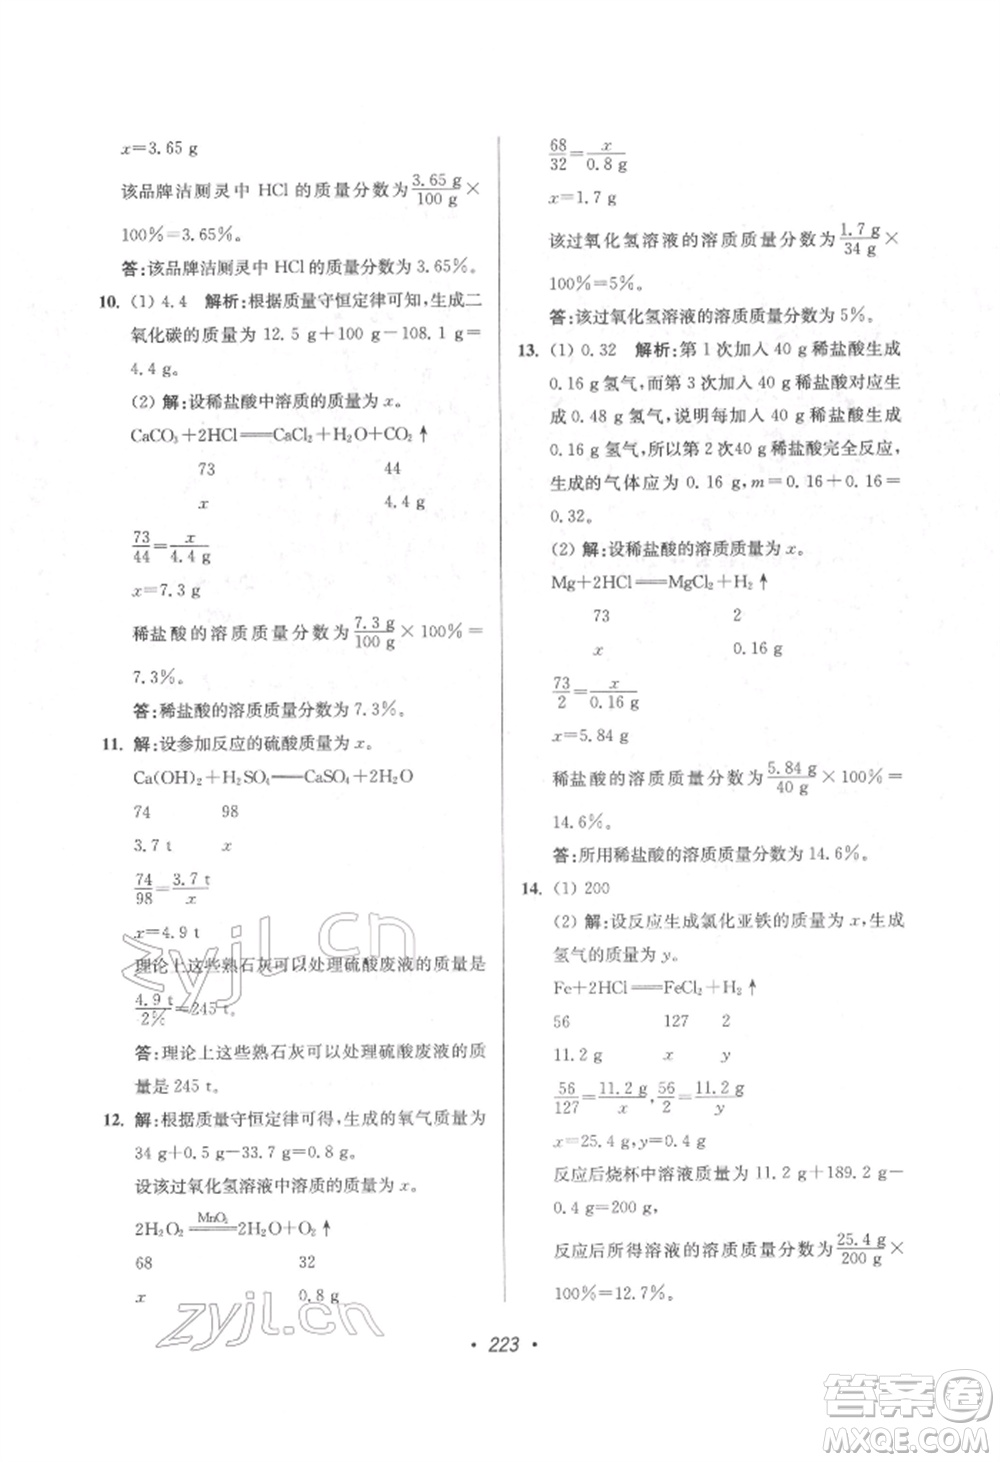 x=3.65 g
该品牌洁厕灵中 HCl 的质量分数为 3.65 g/100 g ×
100%=3.65%。
答:该品牌洁厕灵中 HCl 的质量分数为 3.65%。
10. (1) 4.4 解析:根据质量守恒定律可知,生成二
氧化碳的质量为 12.5 g+100 g-108.1 g=
4.4 g。
(2) 解:设稀盐酸中溶质的质量为 x。
CaCO₃+2HCl══CaCl₂+H₂O+CO₂↑
73 44
x 4.4 g
73/44=x/4.4 g
x=7.3 g
稀盐酸的溶质质量分数为 7.3 g/100 g × 100% =
7.3%。
答:稀盐酸的溶质质量分数为 7.3%。
11. 解:设参加反应的硫酸质量为 x。
Ca(OH)₂+H₂SO₄══CaSO₄+2H₂O
74 98
3.7 t x
74/98=3.7 t/x
x=4.9 t
理论上这些熟石灰可以处理硫酸废液的质量是
4.9 t/2%=245 t。
答:理论上这些熟石灰可以处理硫酸废液的质
量是 245 t。
12. 解:根据质量守恒定律可得,生成的氧气质量为
34 g+0.5 g-33.7 g=0.8 g。
设该过氧化氢溶液中溶质的质量为 x。
2H₂O₂ ══MnO₂══ 2H₂O+O₂↑
68 32
x 0.8 g
68/32=x/0.8 g
x=1.7 g
该过氧化氢溶液的溶质质量分数为 1.7 g/34 g ×
100%=5%。
答:该过氧化氢溶液的溶质质量分数为 5%。
13. (1) 0.32 解析:第 1 次加入 40 g 稀盐酸生成
0.16 g 氢气,而第 3 次加入 40 g 稀盐酸对应生
成 0.48 g 氢气,说明每加入 40 g 稀盐酸生成
0.16 g 氢气,所以第 2 次40 g 稀盐酸完全反应,
生成的气体应为 0.16 g,m=0.16+0.16=
0.32。
(2) 解:设稀盐酸的溶质质量为 x。
Mg+2HCl══MgCl₂+H₂↑
73 2
x 0.16 g
73/2=x/0.16 g
x=5.84 g
稀盐酸的溶质质量分数为 5.84 g/40 g × 100% =
14.6%。
答:所用稀盐酸的溶质质量分数为 14.6%。
14. (1) 200
(2) 解:设反应生成氯化亚铁的质量为 x,生成
氢气的质量为 y。
Fe+2HCl══FeCl₂+H₂↑
56 127 2
11.2 g x y
56/127=11.2 g/x,56/2=11.2 g/y
x=25.4 g,y=0.4 g
反应后烧杯中溶液质量为 11.2 g+189.2 g-
0.4 g=200 g,
反应后所得溶液的溶质质量分数为 25.4 g/200 g ×
100%=12.7%。
• 223 •
zyjl.cn
zyjl.cn
答案卷
MXQE.COM